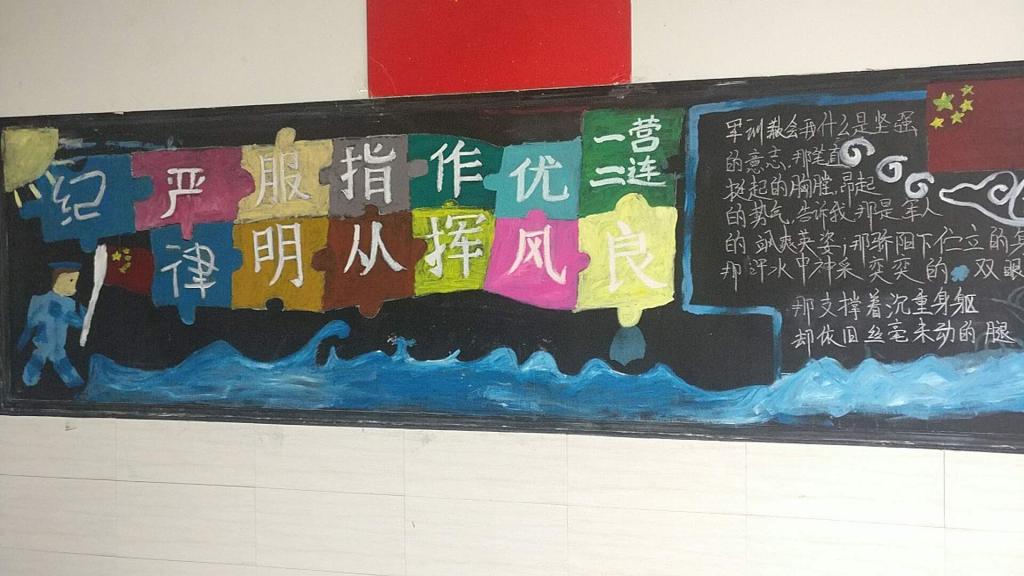 纪 严 服 指 作 优 一营
二连
律 明 从 挥 风 良
军训教会我什么是坚强
的意志,那坚直
挺起的胸膛,昂起
的勇气,告诉我,那是军人
的飒爽英姿;那骄阳下伫立的身
那汗水中冲采奕奕的 双眼
那支撑着沉重身躯
却依旧丝毫未动的腿